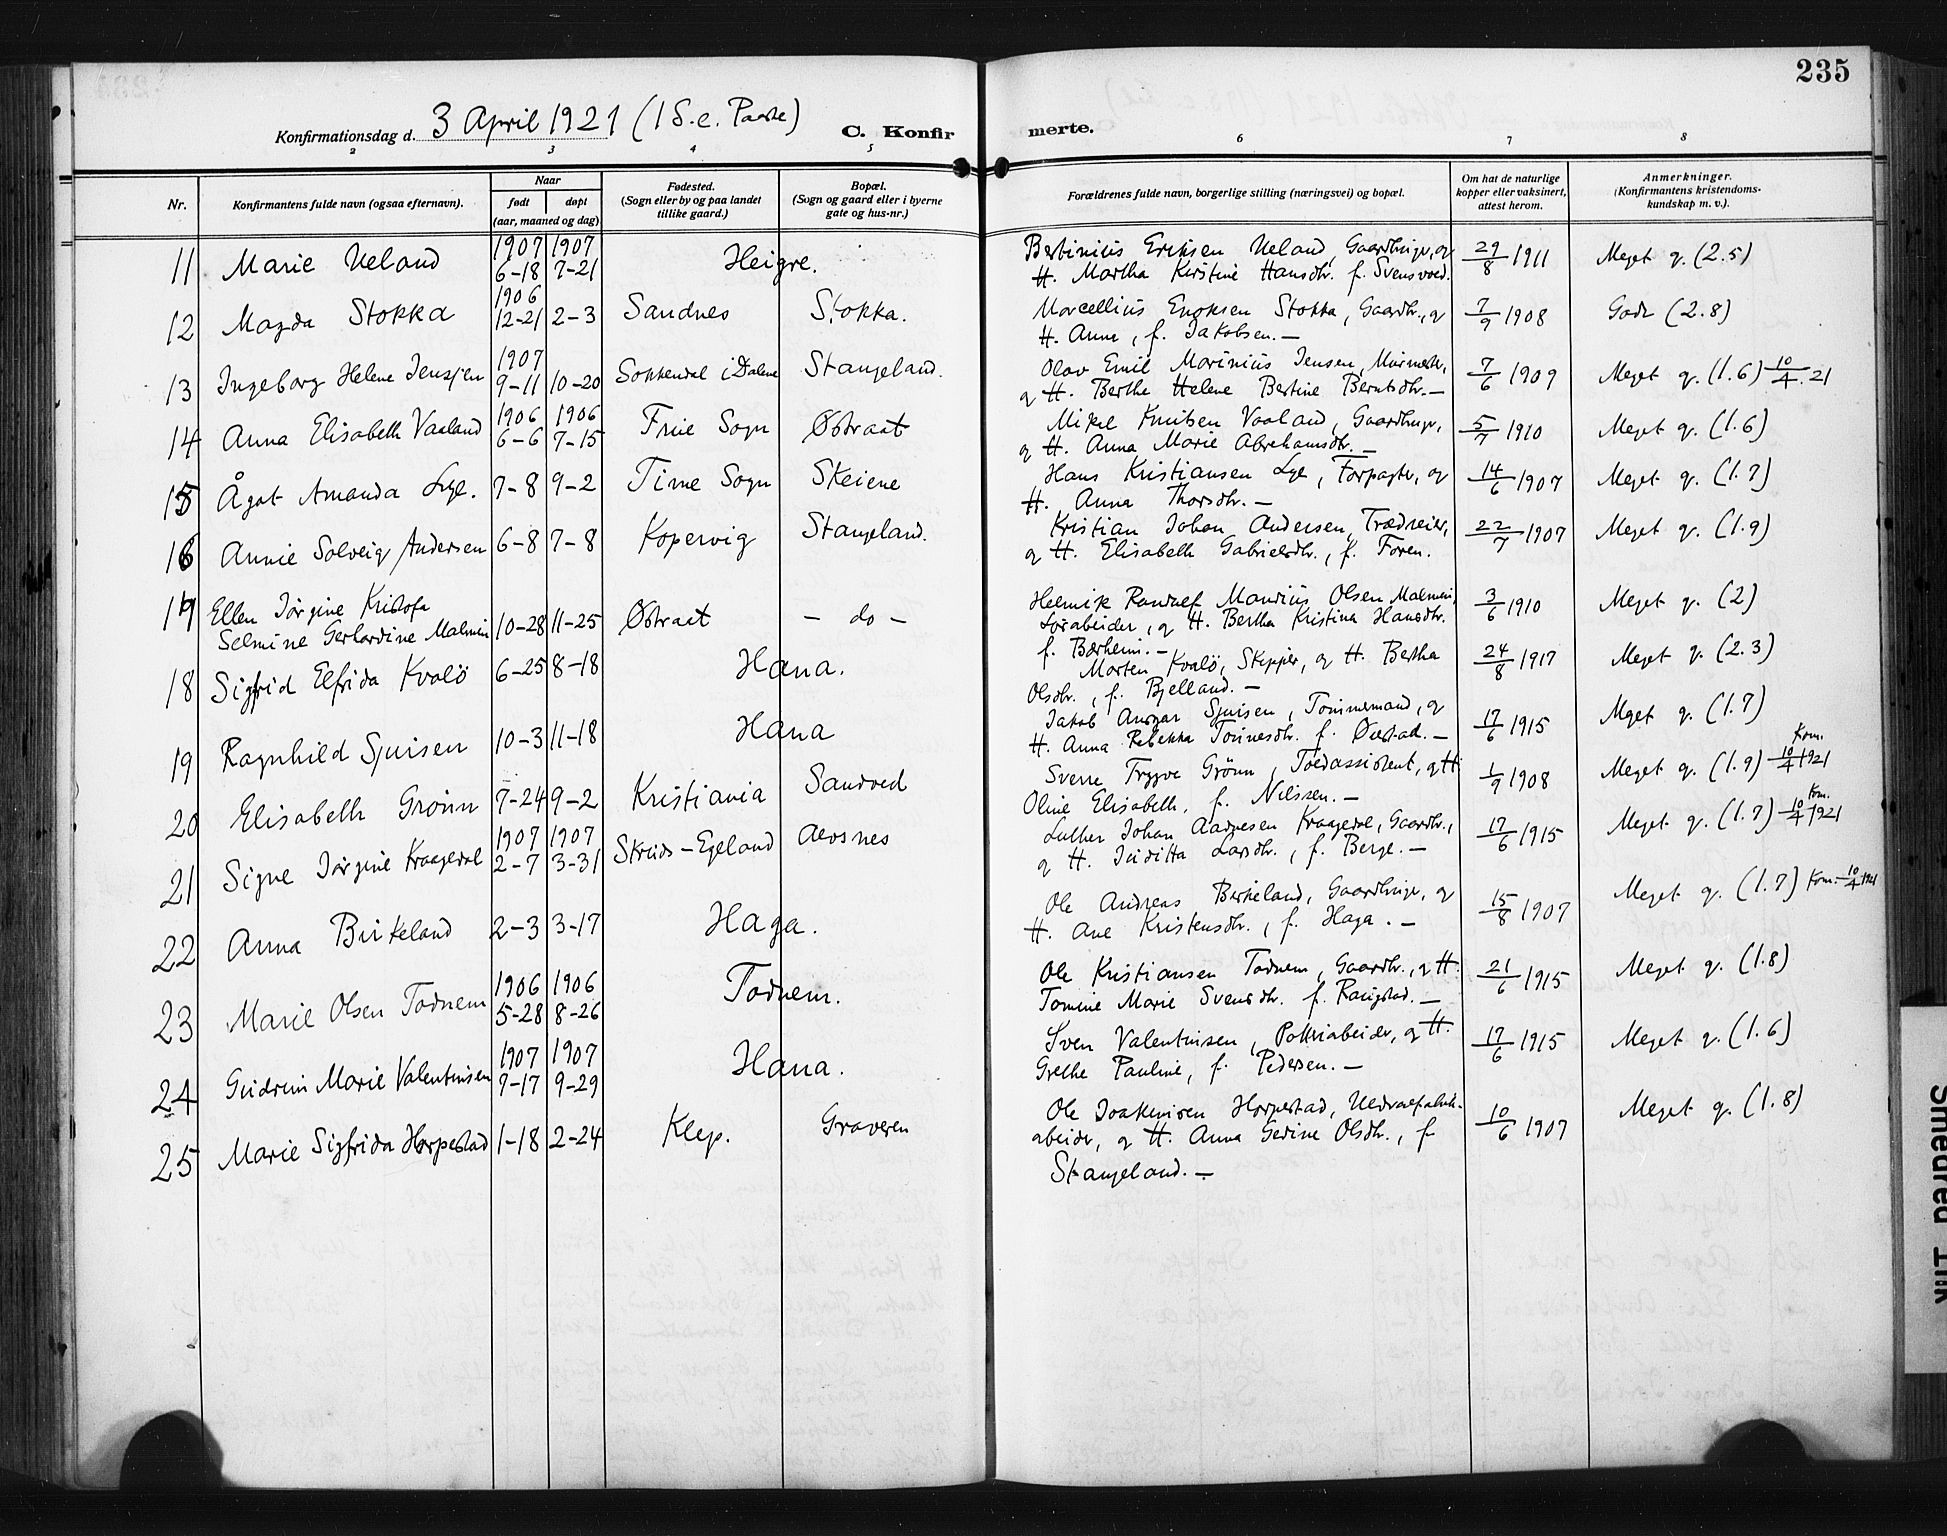 235
Konfirmationsdag d. 3 April 1921 (1 S. e. Paaske)
C. Konfirmerte.
2 3 4 5 6 7 8
Nr.
Konfirmantens fulde navn (ogsaa efternavn).
Naar
født døpt
(aar, maaned og dag)
Fødested.
(Sogn eller by og paa landet
tillike gaard.)
Bopæl.
(Sogn og gaard eller i byerne
gate og hus-nr.)
Forældrenes fulde navn, borgerlige stilling (næringsvei) og bopæl.
Om hat de naturlige
kopper eller vaksinert,
attest herom.
Anmerkninger.
(Konfirmantens kristendoms-
kundskap m. v.).
11 Marie Ueland 1907 6-18 1907 7-21 Heigre. Bertinius Eriksen Ueland, Gaardbruger, og
H. Martha Kirstine Hansdtr. f. Svensvoed. 29/8 1911 Meget g. (2.5)
12 Magda Stokka 1906 12-21 2-3 Sandnes Stokka. Marcellius Enoksen Stokka, Gaardbr., og
H. Anne, f. Jakobsen. — 7/9 1908 Godt (2.8)
13 Ingeborg Helene Jensen 1907 9-11 10-20 Sokkendal i Dalene Stangeland. Olav Emil Marinius Jensen, Murmester,
og H. Berthe Helene Bertine Berntsdtr. — 7/6 1909 Meget g. (1.6) 10/4. 21
14 Anna Elisabeth Vaaland 1906 6-6 1906 7-15 Frue Sogn Østraat Mikel Knutsen Vaaland, Gaardbruger,
og H. Anna Marie Abrahamsdtr. — 5/7 1910 Meget g. (1.6)
15 Ågot Amanda Lye. 7-8 9-2 Time Sogn Skeiene Hans Kristiansen Lye, Forpagter, og
H. Anna Thorsdtr. — 14/6 1907 Meget g. (1.7)
16 Annie Solveig Andersen 6-8 7-8 Kopervig Stangeland. Kristian Johan Andersen, Trædreier,
og H. Elisabeth Gabrielsdtr., f. Foren. 22/7 1907 Meget g. (1.9)
17 Ellen Jørgine Kristofa
Selmine Gerhardine Malmin 10-28 11-25 Østraat — do — Helmik Randulf Mandius Olsen Malmin,
Lørabeider, og H. Bertha Kristina Hansdtr.
f. Bærheim. — 3/6 1910 Meget g. (2)
18 Sigfrid Elfrida Kvalö 6-25 8-18 Hana. Morten Kvalö, Skipper, og H. Bertha
Olsdtr., f. Bjelland. — 24/8 1917 Meget g. (2.3)
19 Ragnhild Sjursen 10-3 11-18 Hana Jakob Ansgar Sjursen, Tømmermand, og
H. Anna Rebekka Tønnesdtr. f. Øvstad. — 17/6 1915 Mget g. (1.7)
20 Elisabeth Grönn 7-24 9-2 Kristiania Sandved Sverre Trygve Grönn, Toldassistent, og H.
Oline Elisabeth, f. Nilssen. — 1/9 1908 Meget g. (1.9) Kom. 10/4 1921
21 Signe Jørgine Kraagedal 1907 2-7 1907 3-31 Skruds-Egeland Aarsnes Luther Johan Aadnesen Kraagedal, Gaardbr.,
og H. Juditta Larsdtr., f. Berge. — 17/6 1915 Meget g. (1.7) Kom. 10/4 1921
22 Anna Birkeland 2-3 3-17 Haga. Ole Andreas Birkeland, Gaardbruger, og
H. Ane Kristensdtr., f. Haga. — 15/8 1907 Meget g. (1.7) Kom. 10/4 1921
23 Marie Olsen Todnem 1906 5-28 1906 8-26 Todnem. Ole Kristiansen Todnem, Gaardbr., og H.
Tomine Marie Svensdtr. f. Raugstad. — 21/6 1915 Meget g. (1.8)
24 Gudrun Marie Valentinsen 1907 7-17 1907 9-29 Hana. Sven Valentinsen, Potteriabeider, og H.
Grethe Pauline, f. Pedersen. — 17/6 1915 Meget g. (1.6)
25 Marie Sigfrida Horpestad 1-18 2-24 Klep. Graveren Ole Joakimsen Horpestad, Uldvarefabrik-
abeider, og H. Anna Gedine Olsdtr., f.
Stangeland. — 10/6 1907 Meget g. (1.8)